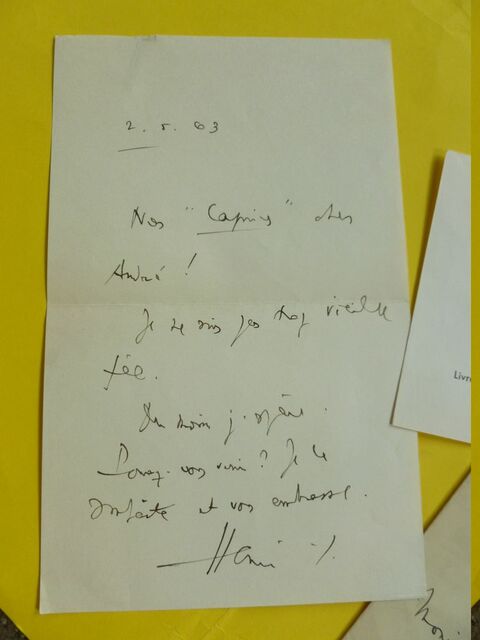 2. 5. 63
Nos "Caprices" cher
André !
Je ne suis pas trop vieille
fée.
Du moins j'espère.
Pouvez-vous venir ? Je le
souhaite et vous embrasse.
Henri
Livr